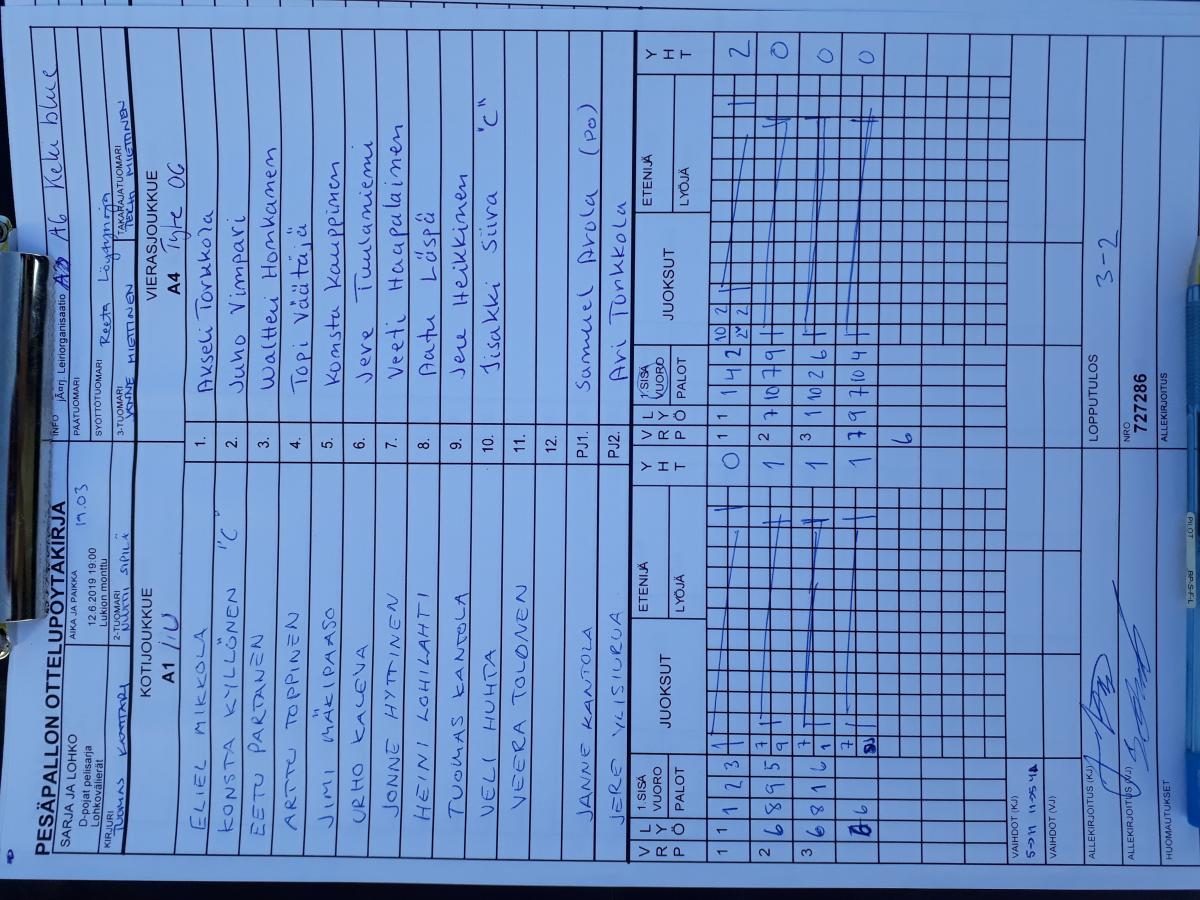 PESÄPALLON OTTELUPÖYTÄKIRJA
SARJA JA LOHKO
D-pojat pelisarja
Lohkovälierät
AIKA JA PAIKKA
12.6.2019 19:00 19.03
Lukion monttu
INFO jÄ¤rj. Leiriorganisaatio A6 Keki blue
PÄÄTUOMARI
SYÖTTÖTUOMARI Reeta
KIRJURI TUOMAS
2-TUOMARI SIPILÄ
3-TUOMARI MIETTINEN
TAKARAJATUOMARI MIETTINEN
KOTIJOUKKUE
A1
VIERASJOUKKUE
A4 Tyte 06
ELIEL MIKKOLA 1. Akseli Torkkola
KONSTA KYLLÖNEN "C" 2. Juho Vimpari
EETU PARTANEN 3. Waltteri Honkanen
ARTTU TOPPINEN 4. Topi Väätäjä
JIMI MÄKIPAASO 5. Konsta Kauppinen
URHO KALEVA 6. Jere Tuulaniemi
JONNE HYTTINEN 7. Veeti Haapalainen
HEINI LOHILAHTI 8. Aatu Läspä
TUOMAS KANTOLA 9. Jere Heikkinen
VELI HUHTA 10. Iisakki Siira "C"
VEERA TOLONEN 11.
12.
JANNE KANTOLA PJ1. Samuel Arola (PO)
JERE YLISIURUA PJ2. Ari Tonkkola
V R P L Y Ö 1 SISÄ VUORO PALOT JUOKSUT ETENIJÄ LYÖJÄ Y H T V R P L Y Ö 1 SISÄ VUORO PALOT JUOKSUT ETENIJÄ LYÖJÄ Y H T
1 1 1 2 3 1 0 1 1 1 4 2 10 2 2 2 2
2 6 8 9 5 7 9 1 2 7 10 7 9 0
3 6 8 1 6 7 1 1 3 1 10 2 6 0
6 7 1 7 9 7 10 4 0
6
VAIHDOT (KJ)
VAIHDOT (VJ)
ALLEKIRJOITUS (KJ)
LOPPUTULOS 3-2
ALLEKIRJOITUS (VJ)
NRO
727286
HUOMAUTUKSET
ALLEKIRJOITUS
PILOT